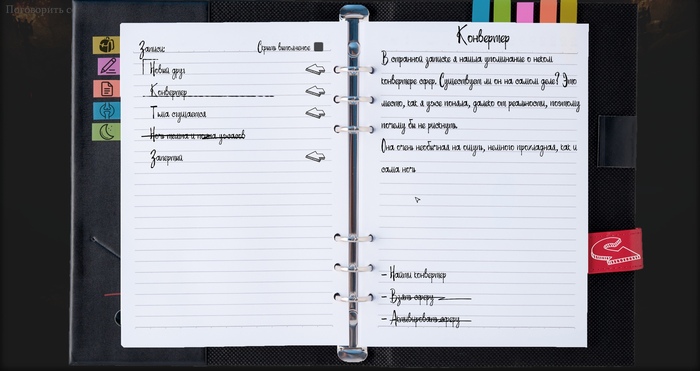 Поговорить с
Записи:
Скрыть выполненое
Новый друг
Конвертер
Тьма сгущается
Ночь темна и полна ужасов
Запертый
Конвертер
В странной записке я нашла упоминание о неком
конвертере сфер. Существует ли он на самом деле? Это
место, как я уже поняла, далеко от реальности, поэтому
почему бы не рискнуть.
Она очень необычная на ощупь, немного прохладная, как и
сама ночь
- Найти конвертер
- Взять сферу
- Активировать сферу